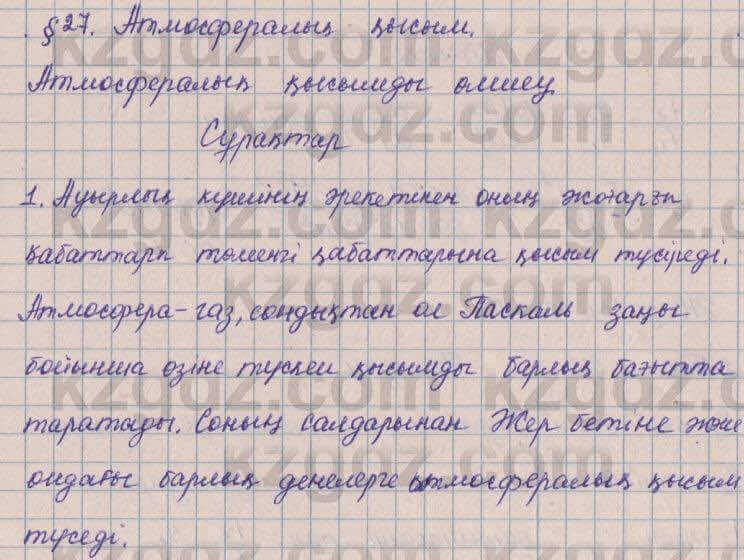 §27. Атмосфералық қысым.
Атмосфералық қысымды өлшеу
Сұрақтар
1. Ауырлық күшінің әрекетінен оның жоғарғы
қабаттары төменгі қабаттарына қысым түсіреді.
Атмосфера-газ, сондықтан ол Паскаль заңы
бойынша өзіне түскен қысымды барлық бағытта
таратады. Соның салдарынан Жер бетіне және
ондағы барлық денелерге атмосфералық қысым
түседі.
kzgdz.com